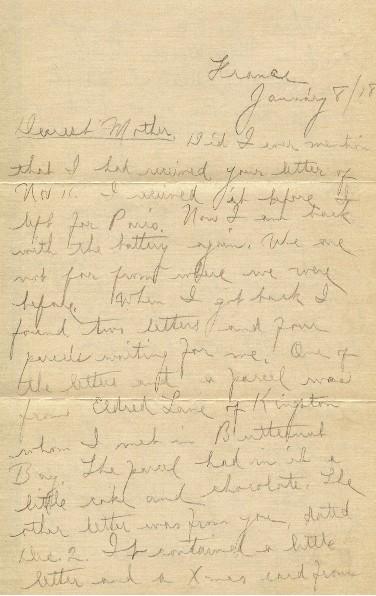 France
January 8/18
Dearest Mother, Did I ever mention
that I had received your letter of
Nov 11. I received it before I
left for Paris. Now I am back
with the battery again. We are
not far from where we were
before. When I got back I
found two letters and four
parcels waiting for me. One of
the letters and a parcel was
from Eldred Lane of Kingston
whom I met in Butternut
Bay. The parcel had in it a
little cake and chocolate. The
other letter was from you, dated
Dec. 2. It contained a little
letter and a Xmas card from